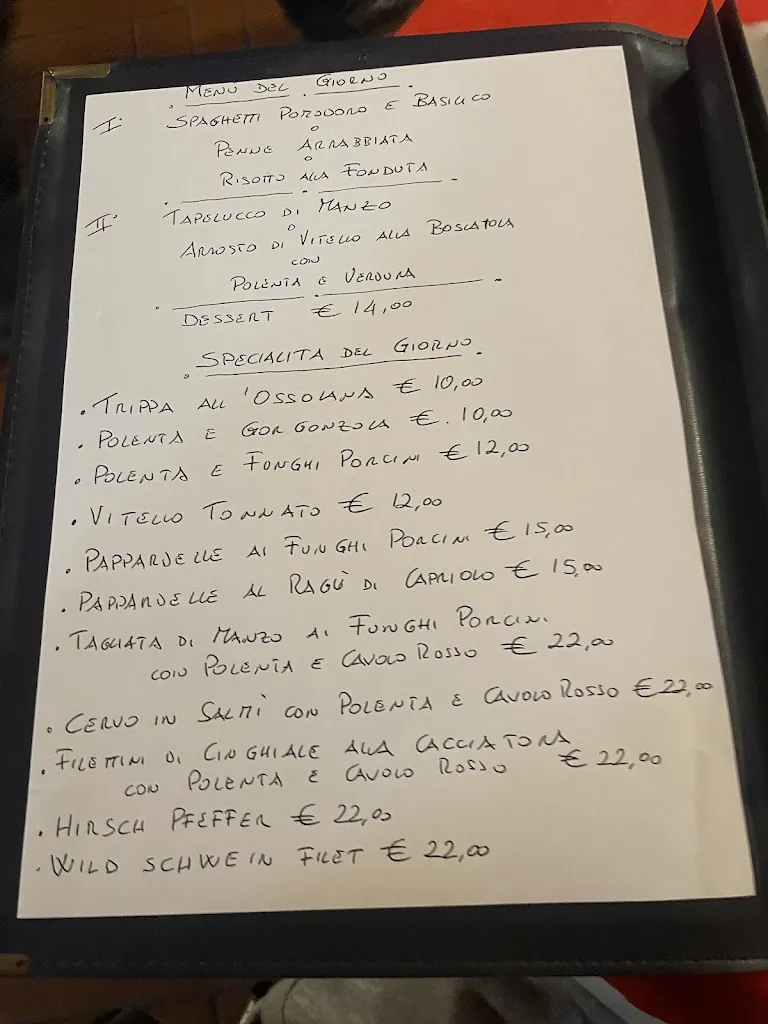 MENU DEL GIORNO
I° SPAGHETTI POMODORO E BASILICO
O
PENNE ARRABBIATA
O
RISOTTO ALLA FONDUTA
II° TAPELUCCO DI MANZO
O
ARROSTO DI VITELLO ALLA BOSCAIOLA
CON
POLENTA E VERDURA
DESSERT € 14,00
SPECIALITA DEL GIORNO
• TRIPPA ALL'OSSOLANA € 10,00
• POLENTA E GORGONZOLA €. 10,00
• POLENTA E FUNGHI PORCINI € 12,00
• VITELLO TONNATO € 12,00
• PAPPARDELLE AI FUNGHI PORCINI € 15,00
• PAPPARDELLE AL RAGÙ DI CAPRIOLO € 15,00
• TAGLIATA DI MANZO AI FUNGHI PORCINI
CON POLENTA E CAVOLO ROSSO € 22,00
• CERVO IN SALMÌ CON POLENTA E CAVOLO ROSSO € 22,00
• FILETTINI DI CINGHIALE ALLA CACCIATORA
CON POLENTA E CAVOLO ROSSO € 22,00
• HIRSCH PFEFFER € 22,00
• WILD SCHWEIN FILET € 22,00